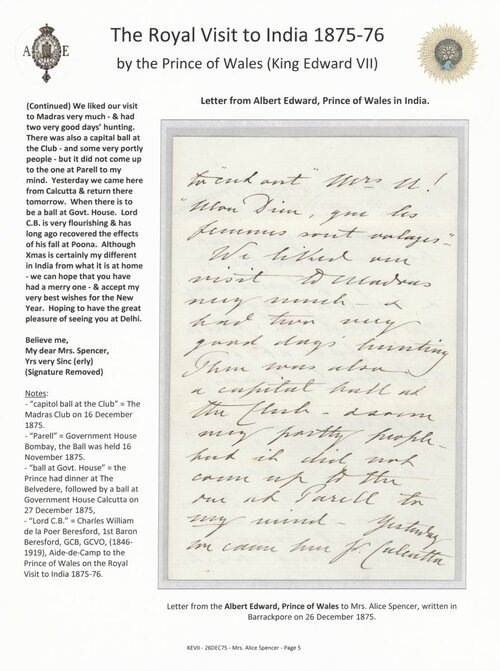 A E
The Royal Visit to India 1875-76
by the Prince of Wales (King Edward VII)
Letter from Albert Edward, Prince of Wales in India.
(Continued) We liked our visit
to Madras very much - & had
two very good days' hunting.
There was also a capital ball at
the Club - and some very portly
people - but it did not come up
to the one at Parell to my
mind.  Yesterday we came here
from Calcutta & return there
tomorrow.  When there is to
be a ball at Govt. House.  Lord
C.B. is very flourishing & has
long ago recovered the effects
of his fall at Poona.  Although
Xmas is certainly my different
in India from what it is at home
- we can hope that you have
had a merry one - & accept my
very best wishes for the New
Year.  Hoping to have the great
pleasure of seeing you at Delhi.
Believe me,
My dear Mrs. Spencer,
Yrs very Sinc (erly)
(Signature Removed)
Notes:
- "capitol ball at the Club" = The
Madras Club on 16 December
1875.
- "Parell" = Government House
Bombay, the Ball was held 16
November 1875.
- "ball at Govt. House" = the
Prince had dinner at The
Belvedere, followed by a ball at
Government House Calcutta on
27 December 1875,
- "Lord C.B." = Charles William
de la Poer Beresford, 1st Baron
Beresford, GCB, GCVO, (1846-
1919), Aide-de-Camp to the
Prince of Wales on the Royal
Visit to India 1875-76.
to "cut out" Mrs U!
"Mon Dieu, que les
femmes sont volages"-
We liked our
visit to Madras
very much - &
had two very
good days' hunting
There was also
a capital ball at
the Club - & some
very portly people -
but it did not
come up to the
one at Parell to
my mind - Yesterday
we came here fr. Calcutta
Letter from the Albert Edward, Prince of Wales to Mrs. Alice Spencer, written in
Barrackpore on 26 December 1875.
KEVII - 26DEC75 - Mrs. Alice Spencer - Page 5